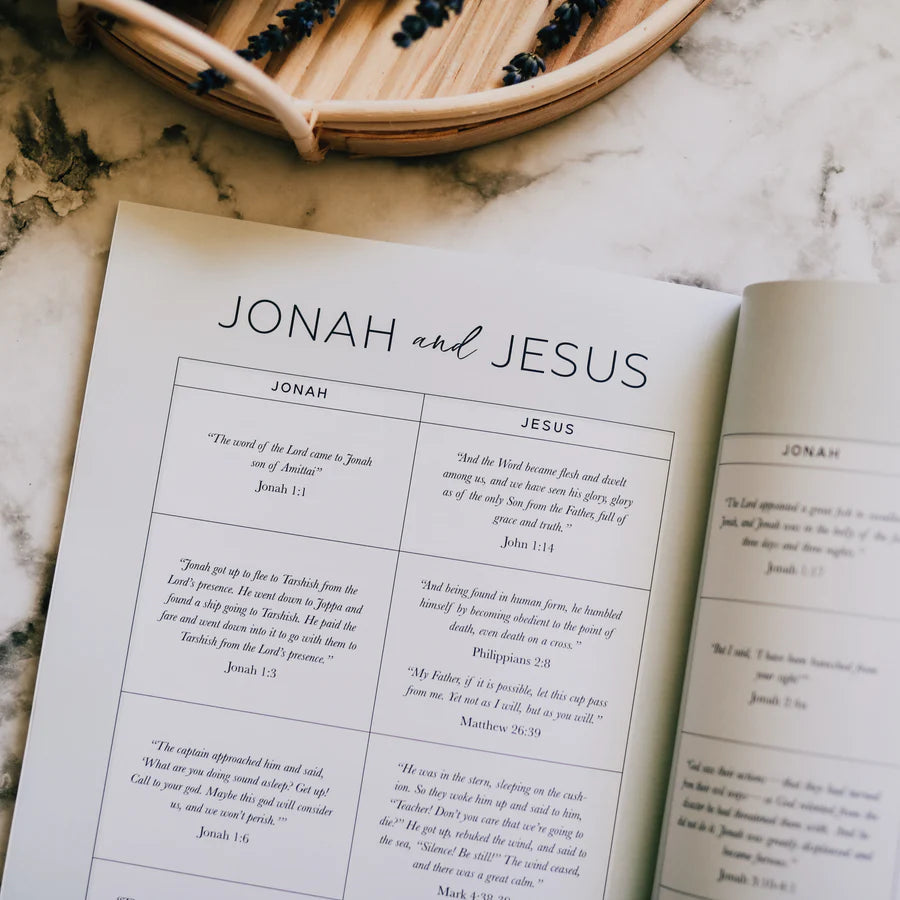 JONAH and JESUS
JONAH
“The word of the Lord came to Jonah
son of Amittai”
Jonah 1:1
JESUS
“And the Word became flesh and dwelt
among us, and we have seen his glory, glory
as of the only Son from the Father, full of
grace and truth.”
John 1:14
“Jonah got up to flee to Tarshish from the
Lord’s presence. He went down to Joppa and
found a ship going to Tarshish. He paid the
fare and went down into it to go with them to
Tarshish from the Lord’s presence.”
Jonah 1:3
“And being found in human form, he humbled
himself by becoming obedient to the point of
death, even death on a cross.”
Philippians 2:8
“My Father, if it is possible, let this cup pass
from me. Yet not as I will, but as you will.”
Matthew 26:39
“The captain approached him and said,
‘What are you doing sound asleep? Get up!
Call to your god. Maybe this god will consider
us, and we won’t perish.’”
Jonah 1:6
“He was in the stern, sleeping on the cush-
ion. So they woke him up and said to him,
“Teacher! Don’t you care that we’re going to
die?” He got up, rebuked the wind, and said to
the sea, “Silence! Be still!” The wind ceased,
and there was a great calm.”
Mark 4:38-39
JONAH
“The Lord appointed a great fish to
Jonah, and Jonah was in the belly of the
three days and three nights.”
Jonah 1:17
“But I said, ‘I have been banished from
your sight’”
Jonah 2:4a
“God saw their actions—that they had turned
from their evil ways—so God relented from the
disaster he had threatened them with. And he
did not do it. Jonah was greatly displeased and
became furious.”
Jonah 3:10-4:1